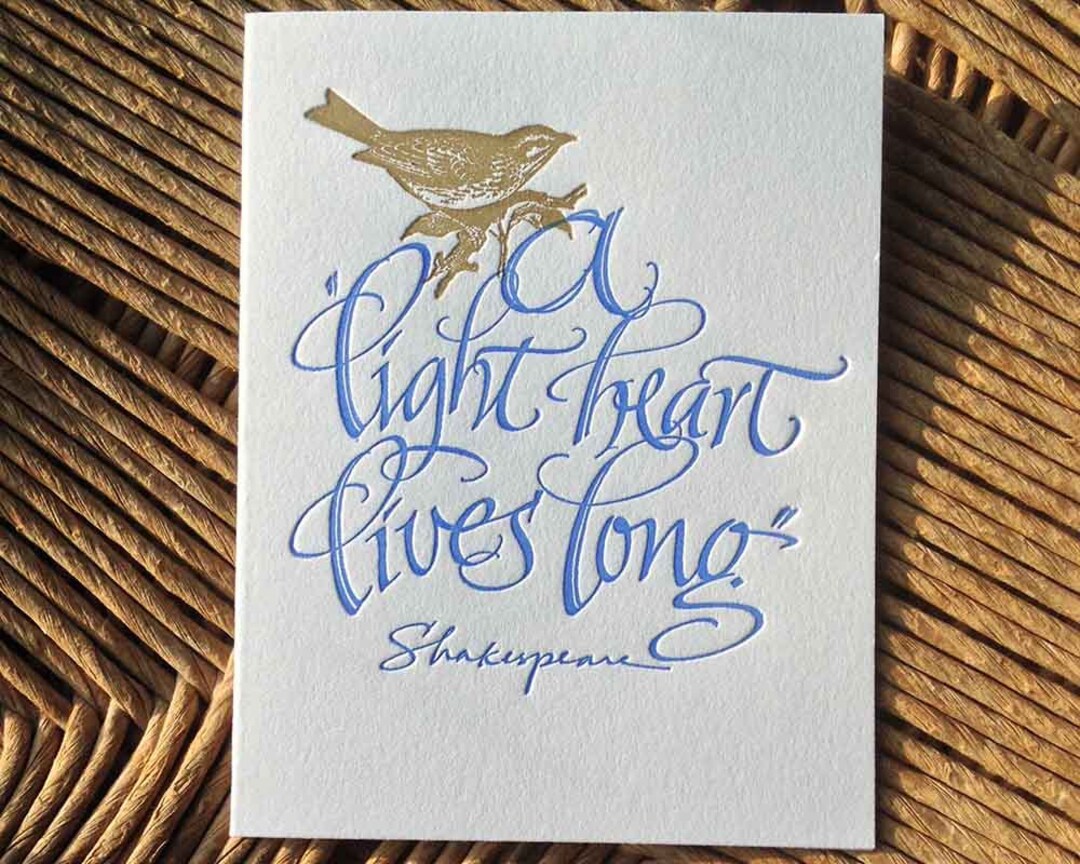 a
"light heart
lives long"
Shakespeare